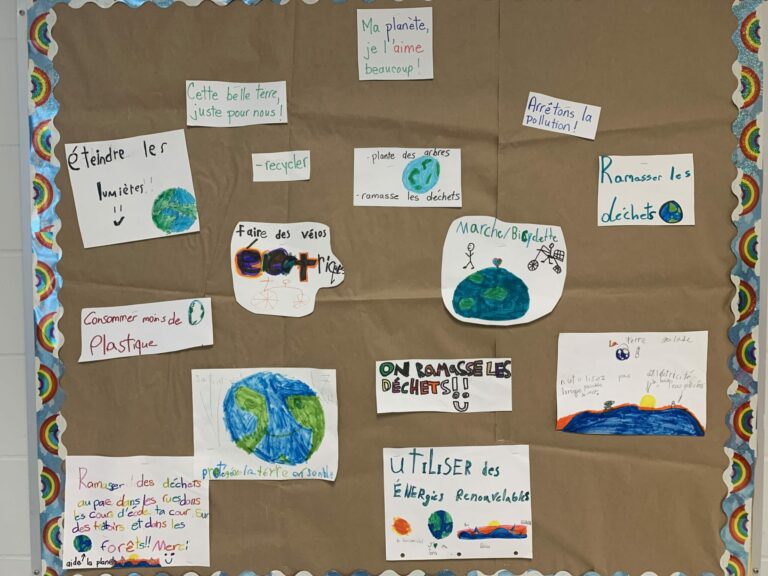 Ma planète,
je l'aime
beaucoup!
Cette belle terre,
juste pour nous!
Arrêtons la
pollution!
éteindre les
lumières!!
-recycler
-plante des arbres
-ramasse les déchets
Ramasser les
déchets
faire des vélos
Marche/Bicyclette
Consommer moins de
Plastique
ON RAMASSE LES
DÉCHETS!!
La terre
n'utilisez pas
protégeon la terre
Ramasser des déchets
au parc dans les rues dans
les cours d'école, ta cour, sur
des trotoirs et dans les
forêts!! Merci
aide la planète
UTILISER des
ÉNERgies Renouvelables